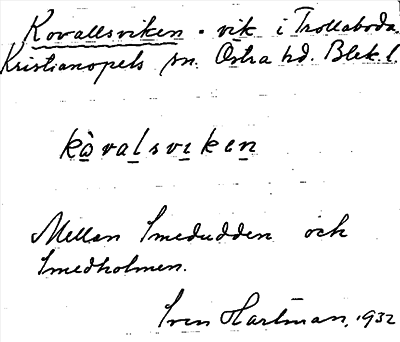 Kovallsviken. vik i Trollaboda.
Kristianopels sn. Östra hd. Blek. l.
kòvalsvikeṉ
Mellan Smedudden och
Smedholmen.
Sven Hartman, 1932